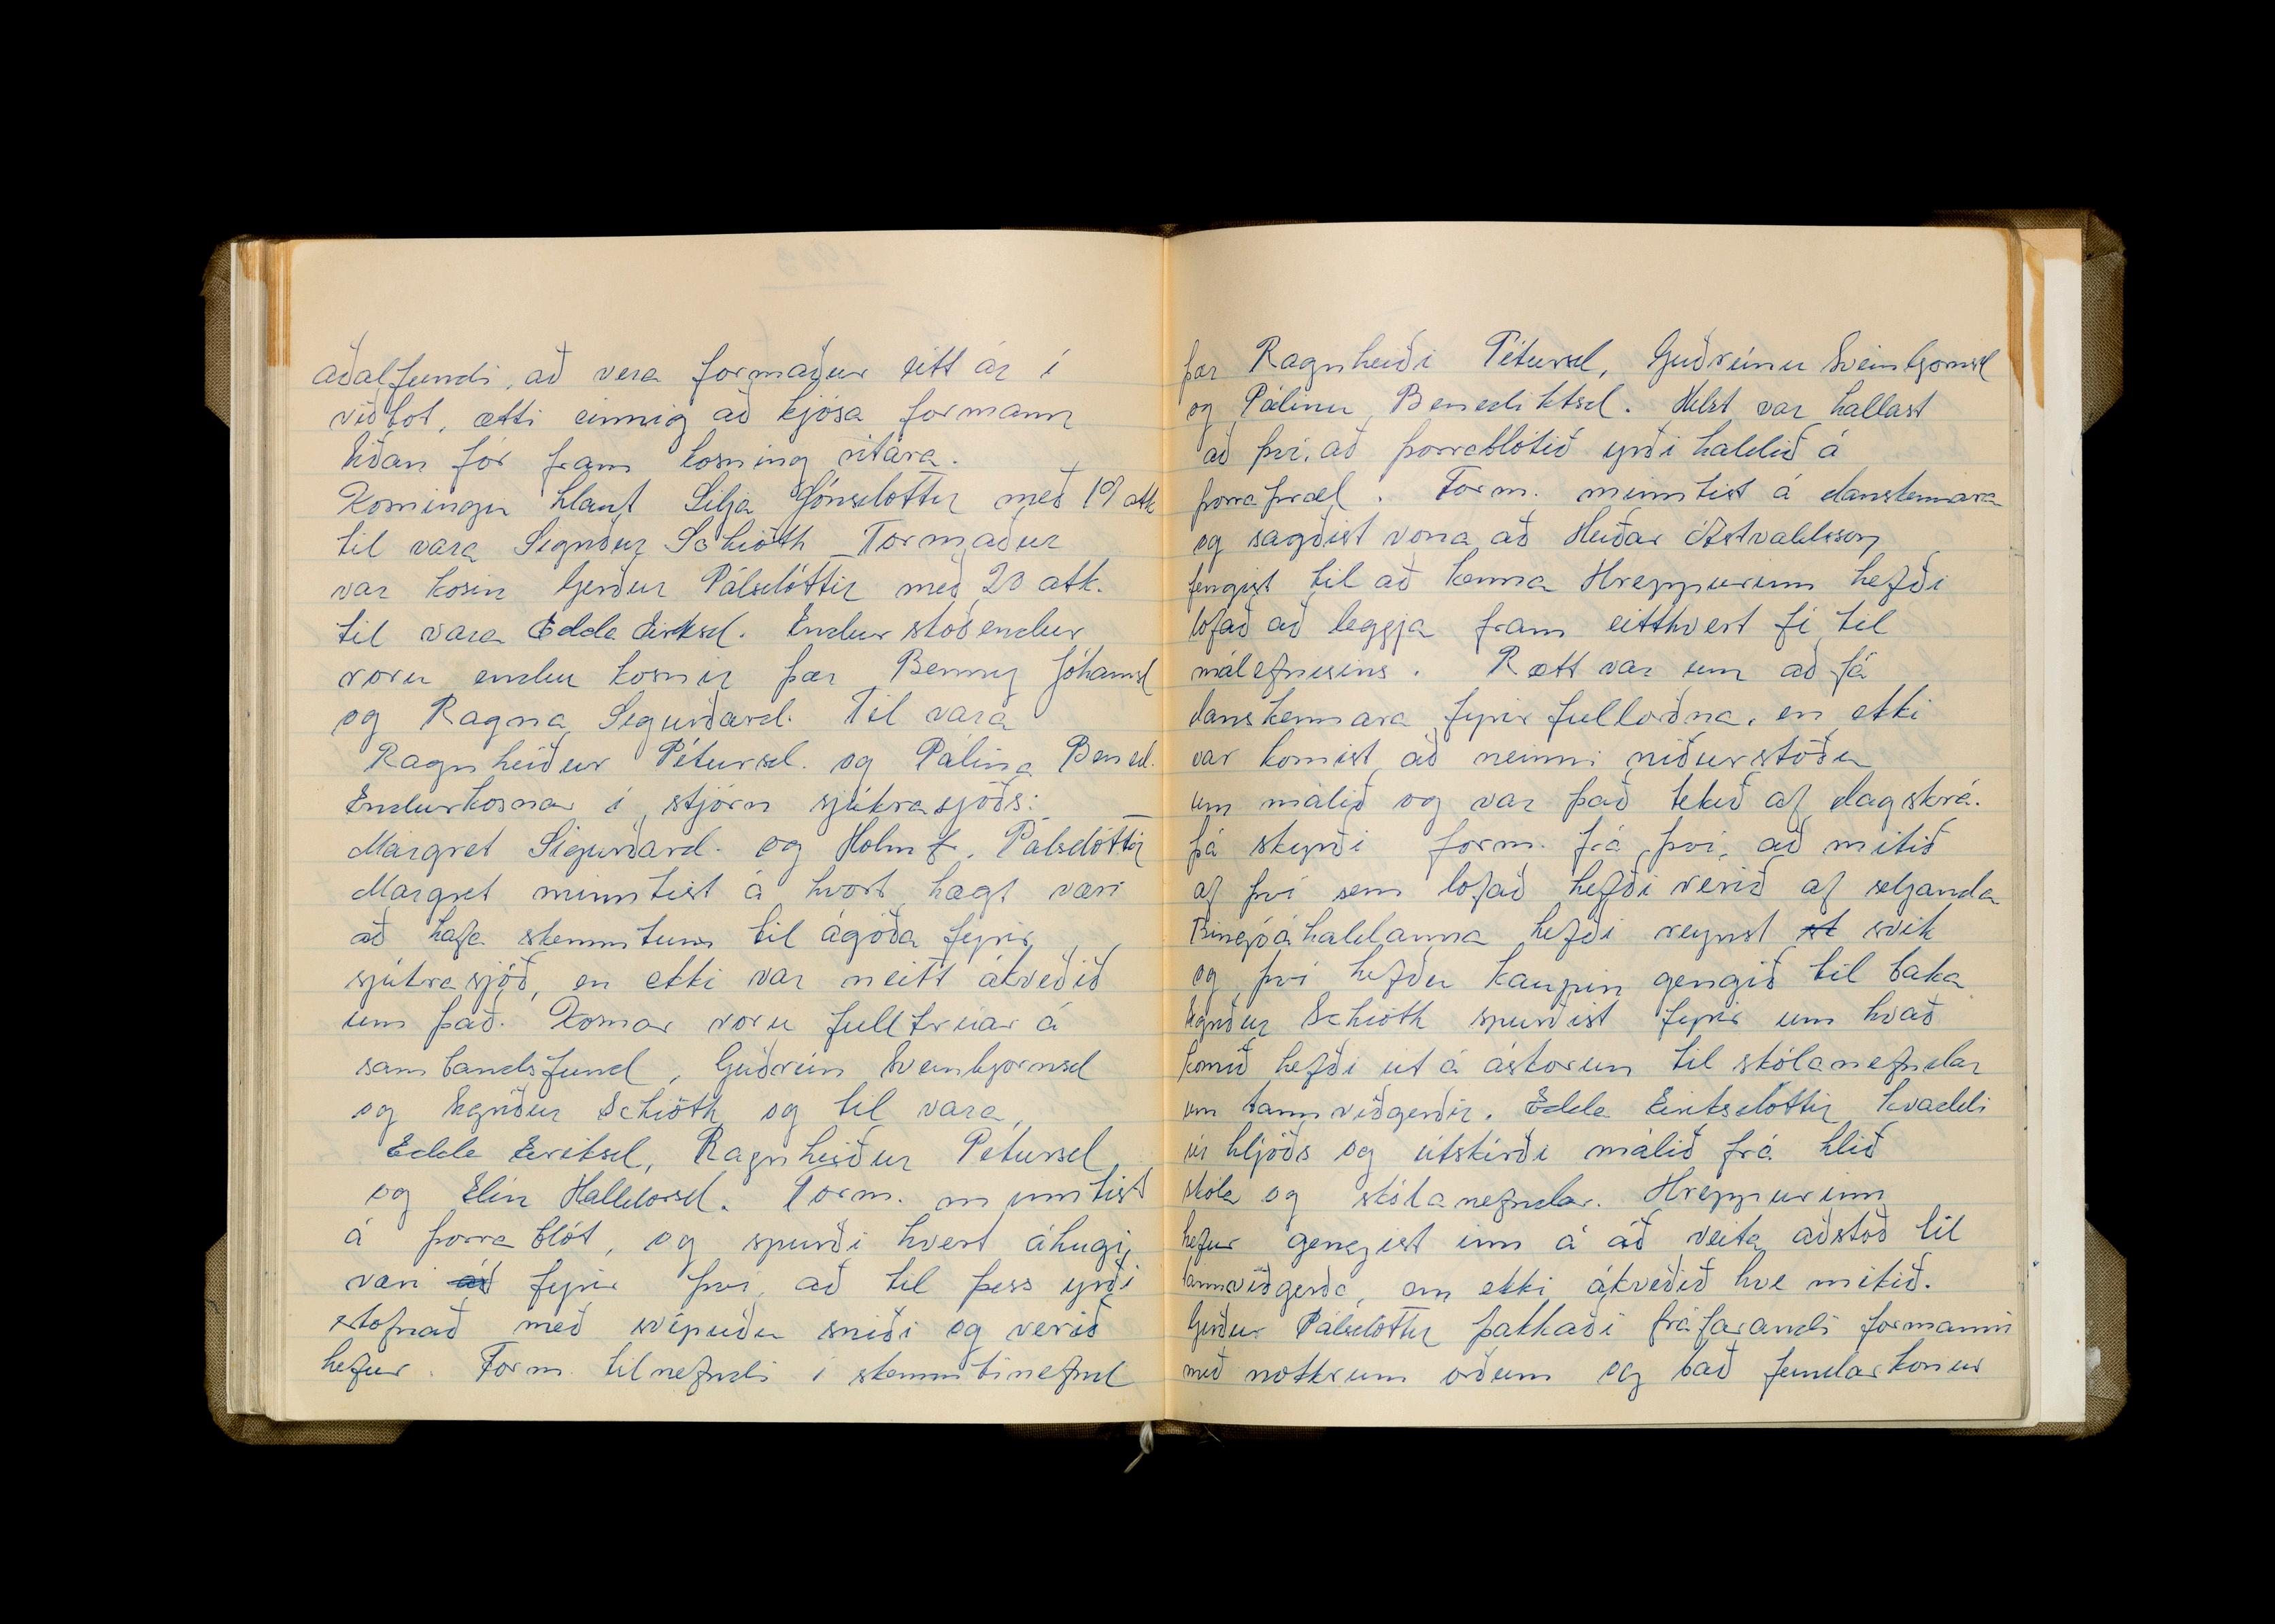 aðalfundi, að vera formaður eitt ár í
viðbot, ætti einnig að kjósa formann
Síðan fór fram kosning ritara.
Kosningu hlaut Silja Jónsdottir með 19 atk
til vara Sigríður Schiöth Formaður
var kosin Gerður Pálsdóttir með 20 atk.
til vara Edda Eiríksd. Endurskoðendur
voru endur kosnir þær Benny Jóhannsd
og Ragna Sigurðard. Til vara
Ragnheiður Pétursd. og Pálína Bened.
Endurkosnar í stjórn sjúkrasjóðs:
Margret Sigurðard. og Holmf. Pálsdóttir
Margret minntist á hvort hægt væri
að hafa skemmtun til ágóða fyrir
sjúkrasjóð, en ekki var neitt ákveðið
um það. Kosnar voru fulltrúar á
sambandsfund, Guðrún Sveinbjornsd
og Sigríður Schiöth og til vara
Edda Eiríksd, Ragnheiður Pétursd
og Elín Halldorsd. Form. minntist
á þorrablót, og spurði hvert áhugi
væri að fyrir því, að til þess yrði
stofnað með svipuðu sniði og verið
hefur. Form tilnefndi í skemmtinefnd
þær Ragnheiði Pétursd, Guðrúnu Sveinbjornsd
og Pálínu Benediktsd. Helst var hallast
að því, að þorrablótið yrði haldið á
þorraþræl. Form. minntist á danskennara
og sagðist vona að Heiðar Ástvaldsson
fengist til að kenna Hreppurinn hefði
lofað að leggja fram eitthvert fé til
málefnisins. Rætt var um að fá
danskennara fyrir fullorðna, en ekki
var komist að neinni niðurstöðu
um málið og var það tekið af dagskrá.
Þá skyrði form. frá því, að mikið
af því sem lofað hefði verið af seljanda
Bingóáhaldanna hefði reynst st svik
og því hefðu kaupin gengið til baka
Sigríður Schiöth spurðist fyrir um hvað
komið hefði út á áskorun til skólanefndar
um tannviðgerðir. Edda Eiríksdóttir kvaddi
sér hljóðs og útskírði málið frá hlið
skóla og skólanefndar. Hreppurinn
hefur gengist inn á að veita aðstoð til
tannviðgerða, en ekki ákveðið hve mikið.
Gerður Pálsdóttir þakkaði fráfarandi formanni
með nokkrum orðum og bað fundarkonur